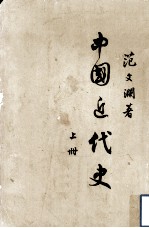 范文瀾著
中國近代史
上冊